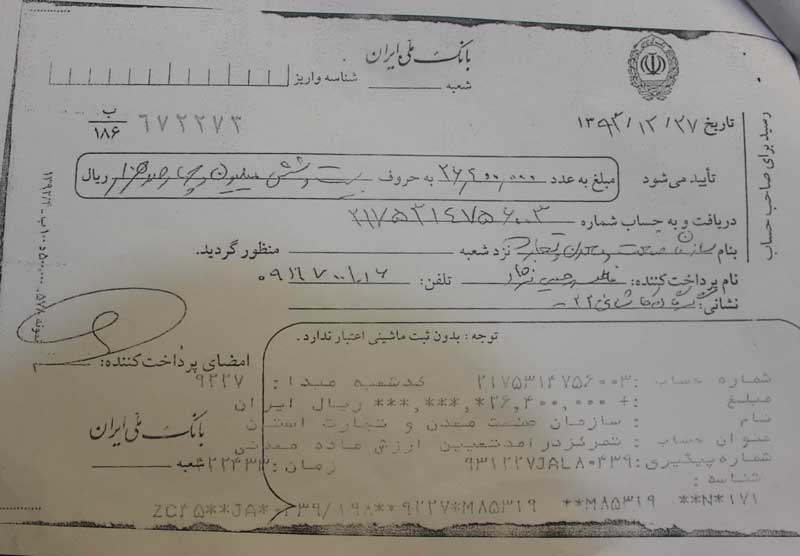 بانک ملی ایران
شعبه
شناسه واریز
تاریخ ۱۳۹۳/۱۲/۲۷
۶۷۲۲۷۳
ب
۱۸۶
رسید برای صاحب حساب
تأیید می‌شود مبلغ به عدد ۲۶,۴۰۰,۰۰۰ به حروف بیست و شش میلیون و چهارصد هزار ریال
دریافت و به حساب شماره ۲۱۷۵۳۱۴۷۵۶۰۰۳
بنام سازمان صنعت معدن و تجارت نزد شعبه منظور گردید.
نام پرداخت‌کننده: تلفن:
نشانی:
توجه : بدون ثبت ماشینی اعتبار ندارد.
امضای پرداخت‌کننده:
شماره حساب : ۲۱۷۵۳۱۴۷۵۶۰۰۳ کدشعبه مبدا : ۹۲۲۷
مبلغ : + ۲۶,۴۰۰,۰۰۰*,***,*** ریال ایران
نام : سازمان صنعت معدن و تجارت استان
عنوان حساب : تمرکزدرامدتعیین ارزش ماده معدنی
شماره پیگیری: ۹۳۱۲۲۷JAL۸۰۴۳۹ زمان:
شناسه :
بانک ملی ایران
شعبه
**M۸۵۳۱۹ **N*۱۷۱